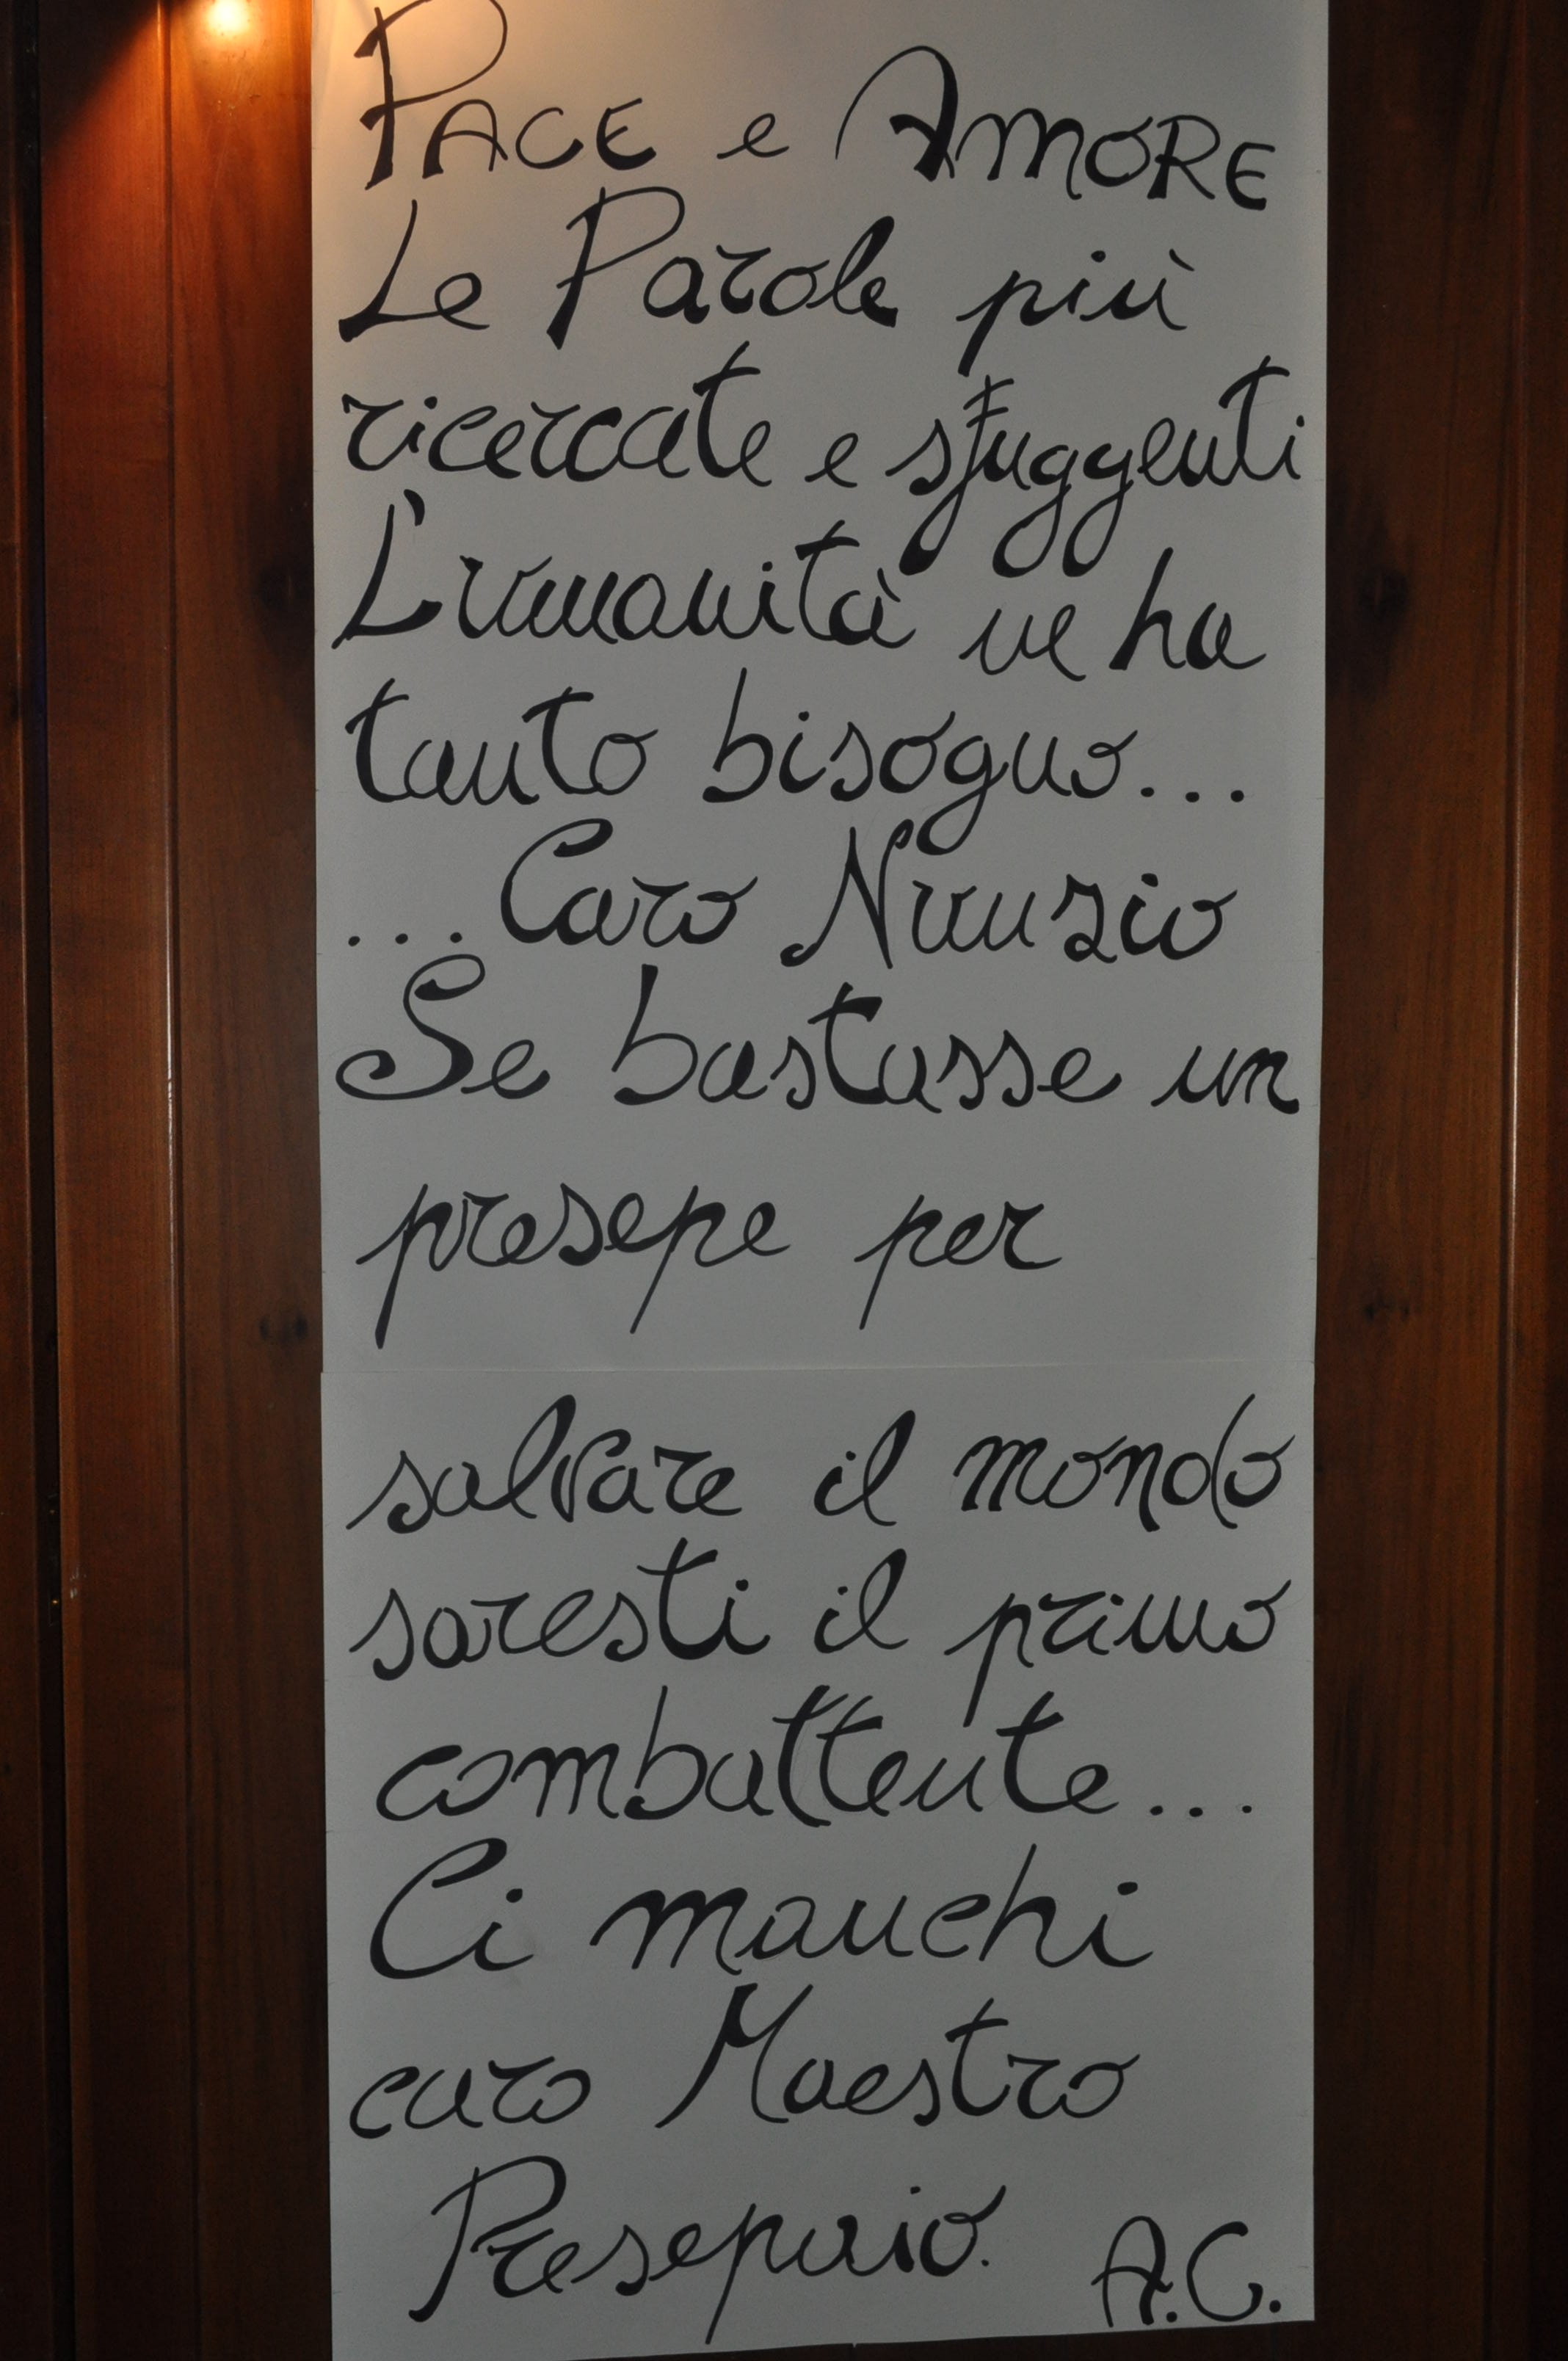 PACE e AMORE
Le Parole più
ricercate e sfuggenti
L'umanità ne ha
tanto bisogno...
...Caro Nunzio
Se bastasse un
presepe per
salvare il mondo
saresti il primo
combattente...
Ci manchi
caro Maestro
Presepaio.
A.C.